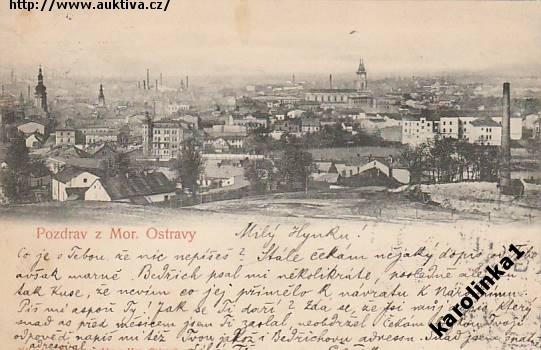 http://www.auktiva.cz/
Pozdrav z Mor. Ostravy
Milý Hynku!
Co je s Tebou, že nic nepíšeš? Stále čekám nějaký dopis
avšak marně. Bedřich psal mi několikráte, posledně
tak kuse, že nevím co jej přimělo k návratu k
Piš mi aspoň Ty! Jak se Ti daří? Zdá se, že jsi můj který
snad as před měsícem jsem Ti zaslal neobdržel. Čekám
odpověď napiš mi též Bedřichovu adressu. jsem
adresoval
karolinka1